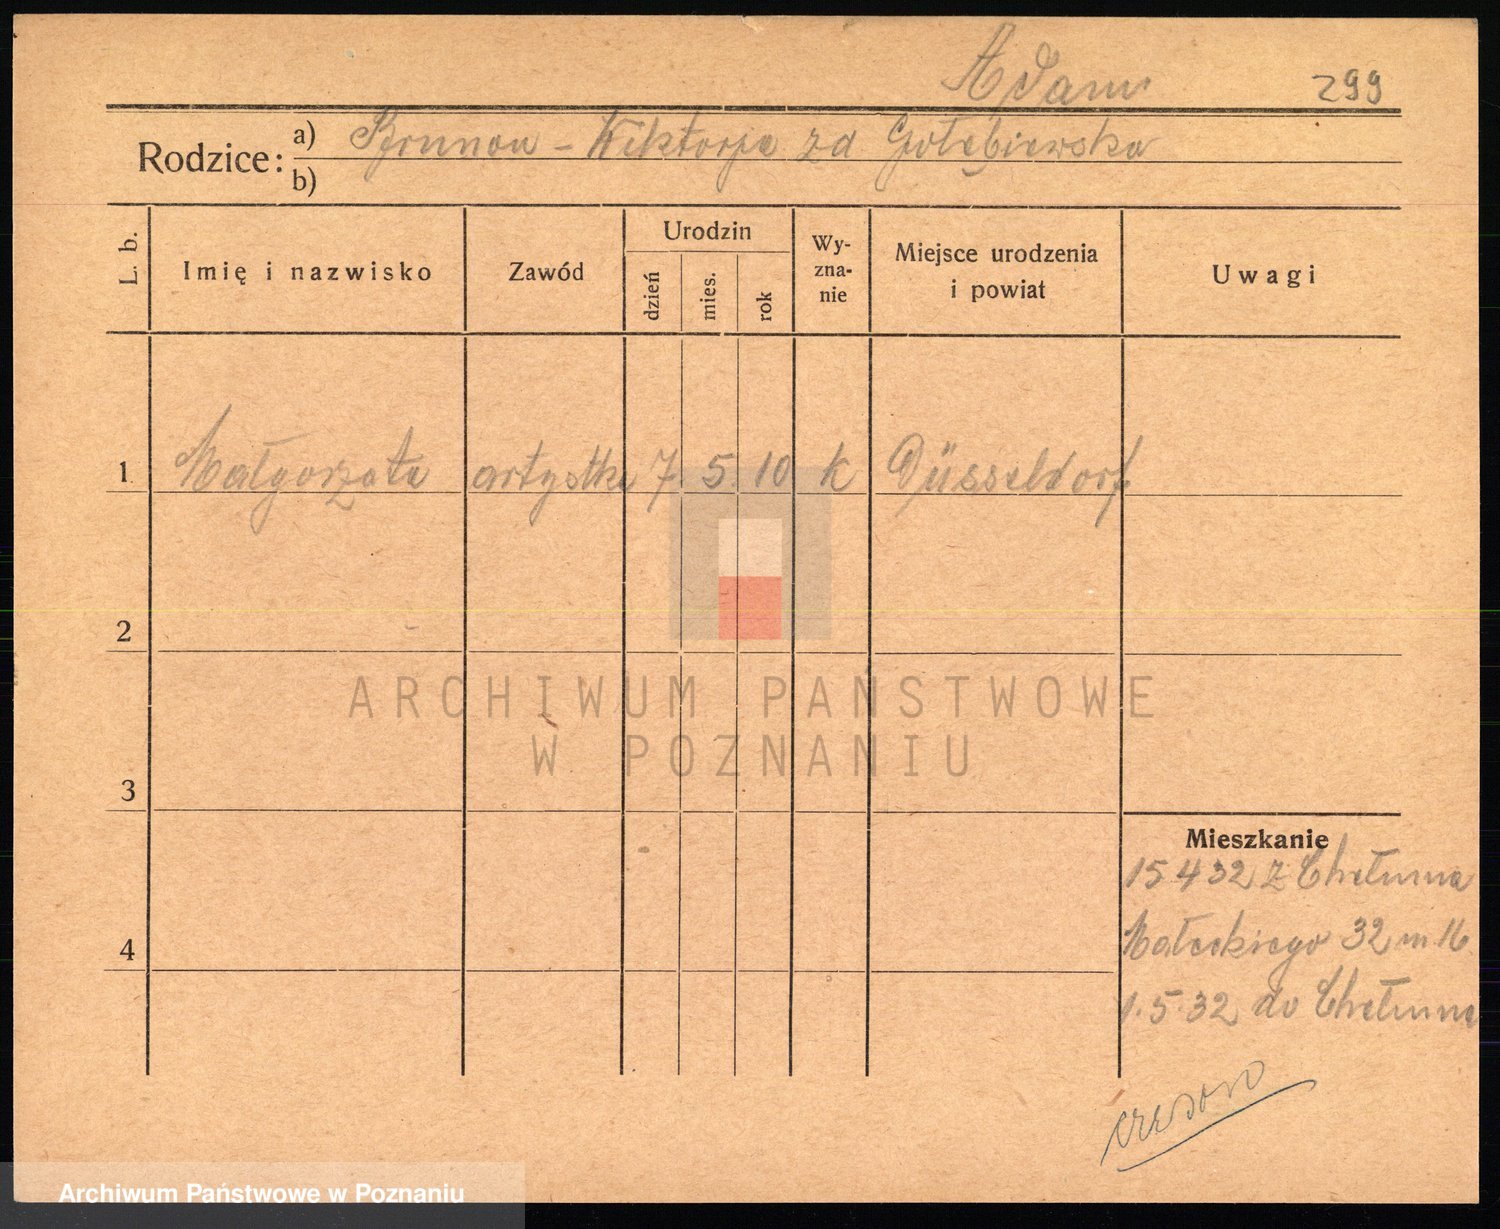 Adam 299
Rodzice: a) Brunon - Wiktorja zd Gołębiewska
b)
L. b.
Imię i nazwisko
Zawód
Urodzin
dzień
mies.
rok
Wy-
zna-
nie
Miejsce urodzenia
i powiat
Uwagi
1 Małgorzata artystka 7. 5. 10 k Düsseldorf
2
3
4
Mieszkanie
15 4 32 z Chełmna
Małeckiego 32 m 16.
1.5.32 do Chełmna
ARCHIWUM PAŃSTWOWE
W POZNANIU
Archiwum Państwowe w Poznaniu